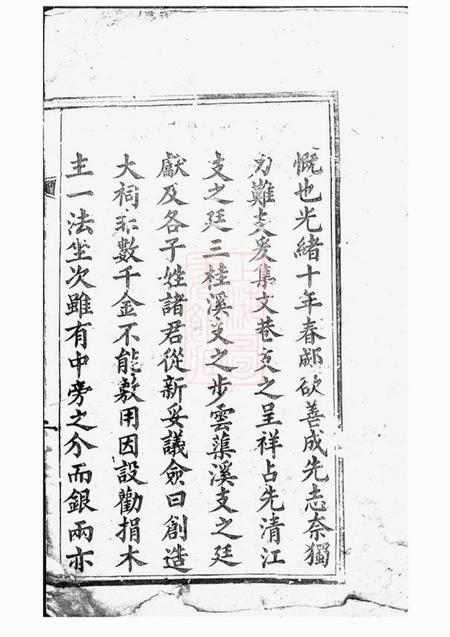 慨也光緒十年春邮欲善成先志奈獨
力難支爰集文巷支之呈祥占先清江
支之廷三桂溪支之步雲蕖溪支之廷
獻及各子姓諸君從新妥議僉曰創造
大祠非數千金不能敷用因設勸捐木
主一法坐次雖有中旁之分而銀兩亦